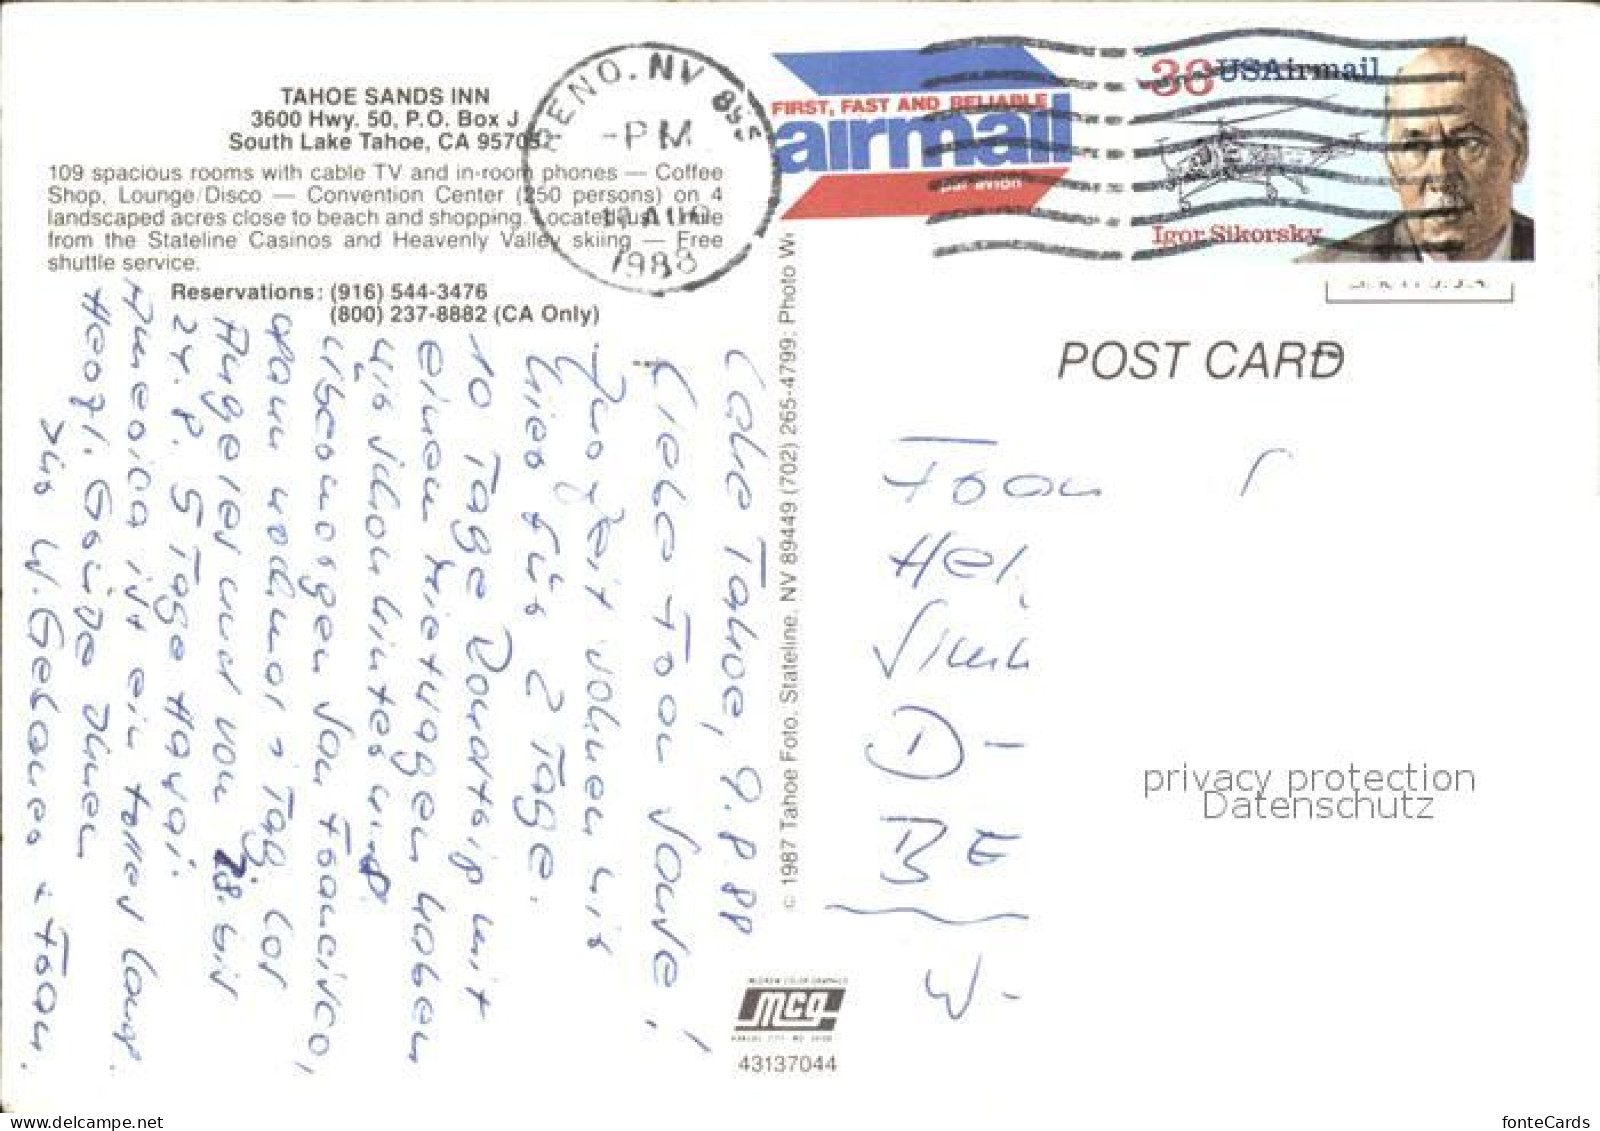 TAHOE SANDS INN
3600 Hwy. 50, P.O. Box J
South Lake Tahoe, CA 95705
109 spacious rooms with cable TV and in-room phones — Coffee
Shop, Lounge/Disco — Convention Center (250 persons) on 4
landscaped acres close to beach and shopping. Located just 1 mile
from the Stateline Casinos and Heavenly Valley skiing — Free
shuttle service.
Reservations: (916) 544-3476
(800) 237-8882 (CA Only)
RENO. NV 895
-PM
10 AUG
1988
FIRST, FAST AND RELIABLE
airmail
par avion
36 USAirmail
Igor Sikorsky
© 1987 Tahoe Foto, Stateline, NV 89449 (702) 265-4799; Photo W
POST CARD
Lake Tahoe, 9.8.88
Liebe Frau
Zur Zeit wohnen wir
hier für 2 Tage.
10 Tage Roundtrip mit
einem Mietwagen haben
wir schon hinter uns.
übermorgen San Francisco,
dann nochmal 1 Tag Los
Angeles und von 18. bis
24.8. 5 Tage Hawai.
America ist ein tolles Land.
Herzl. Grüße Ihnen
Ihr W. u. Frau.
Frau
Hei
D-
BE
W-
mcg
43137044
privacy protection
Datenschutz
www.delcampe.net
fonteCards